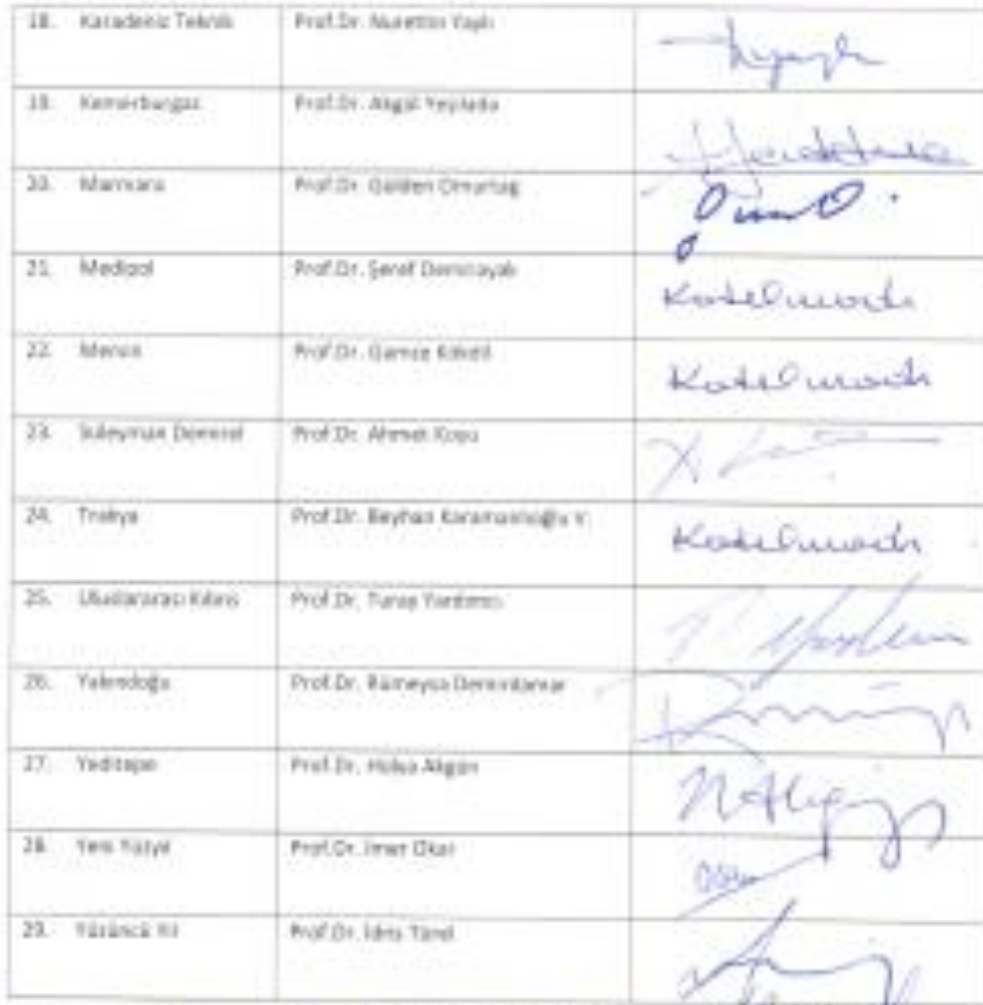 18. Karadeniz Teknik Prof.Dr. Nurettin Yaylı
19. Kemerburgaz Prof.Dr. Akgül Yeşilada
20. Marmara Prof.Dr. Gülden Omurtag
21. Medipol Prof.Dr. Şeref Demirayak Katılmadı
22. Mersin Prof.Dr. Gamze Kökdil Katılmadı
23. Süleyman Demirel Prof.Dr. Ahmet
24. Trakya Prof.Dr. Beyhan Karamanlıoğlu V. Katılmadı
25. Uluslararası Kıbrıs Prof.Dr. Turay Yardımcı
26. Yakındoğu Prof.Dr. Rümeysa Demirdamar
27. Yeditepe Prof.Dr. Hülya Akgün
28. Yeni Yüzyıl Prof.Dr.
29. Yüzüncü Yıl Prof.Dr. İdris Türel